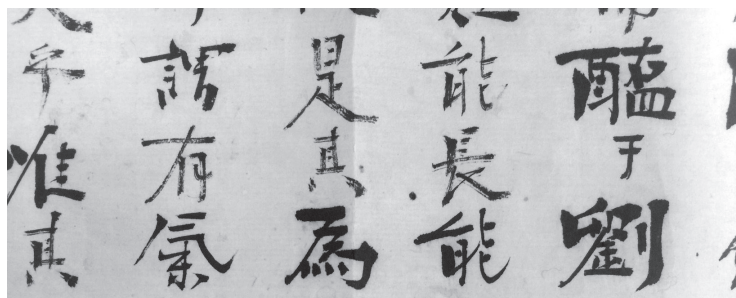 醞于劉
能長能
是其為
謂有氣
乎惟其